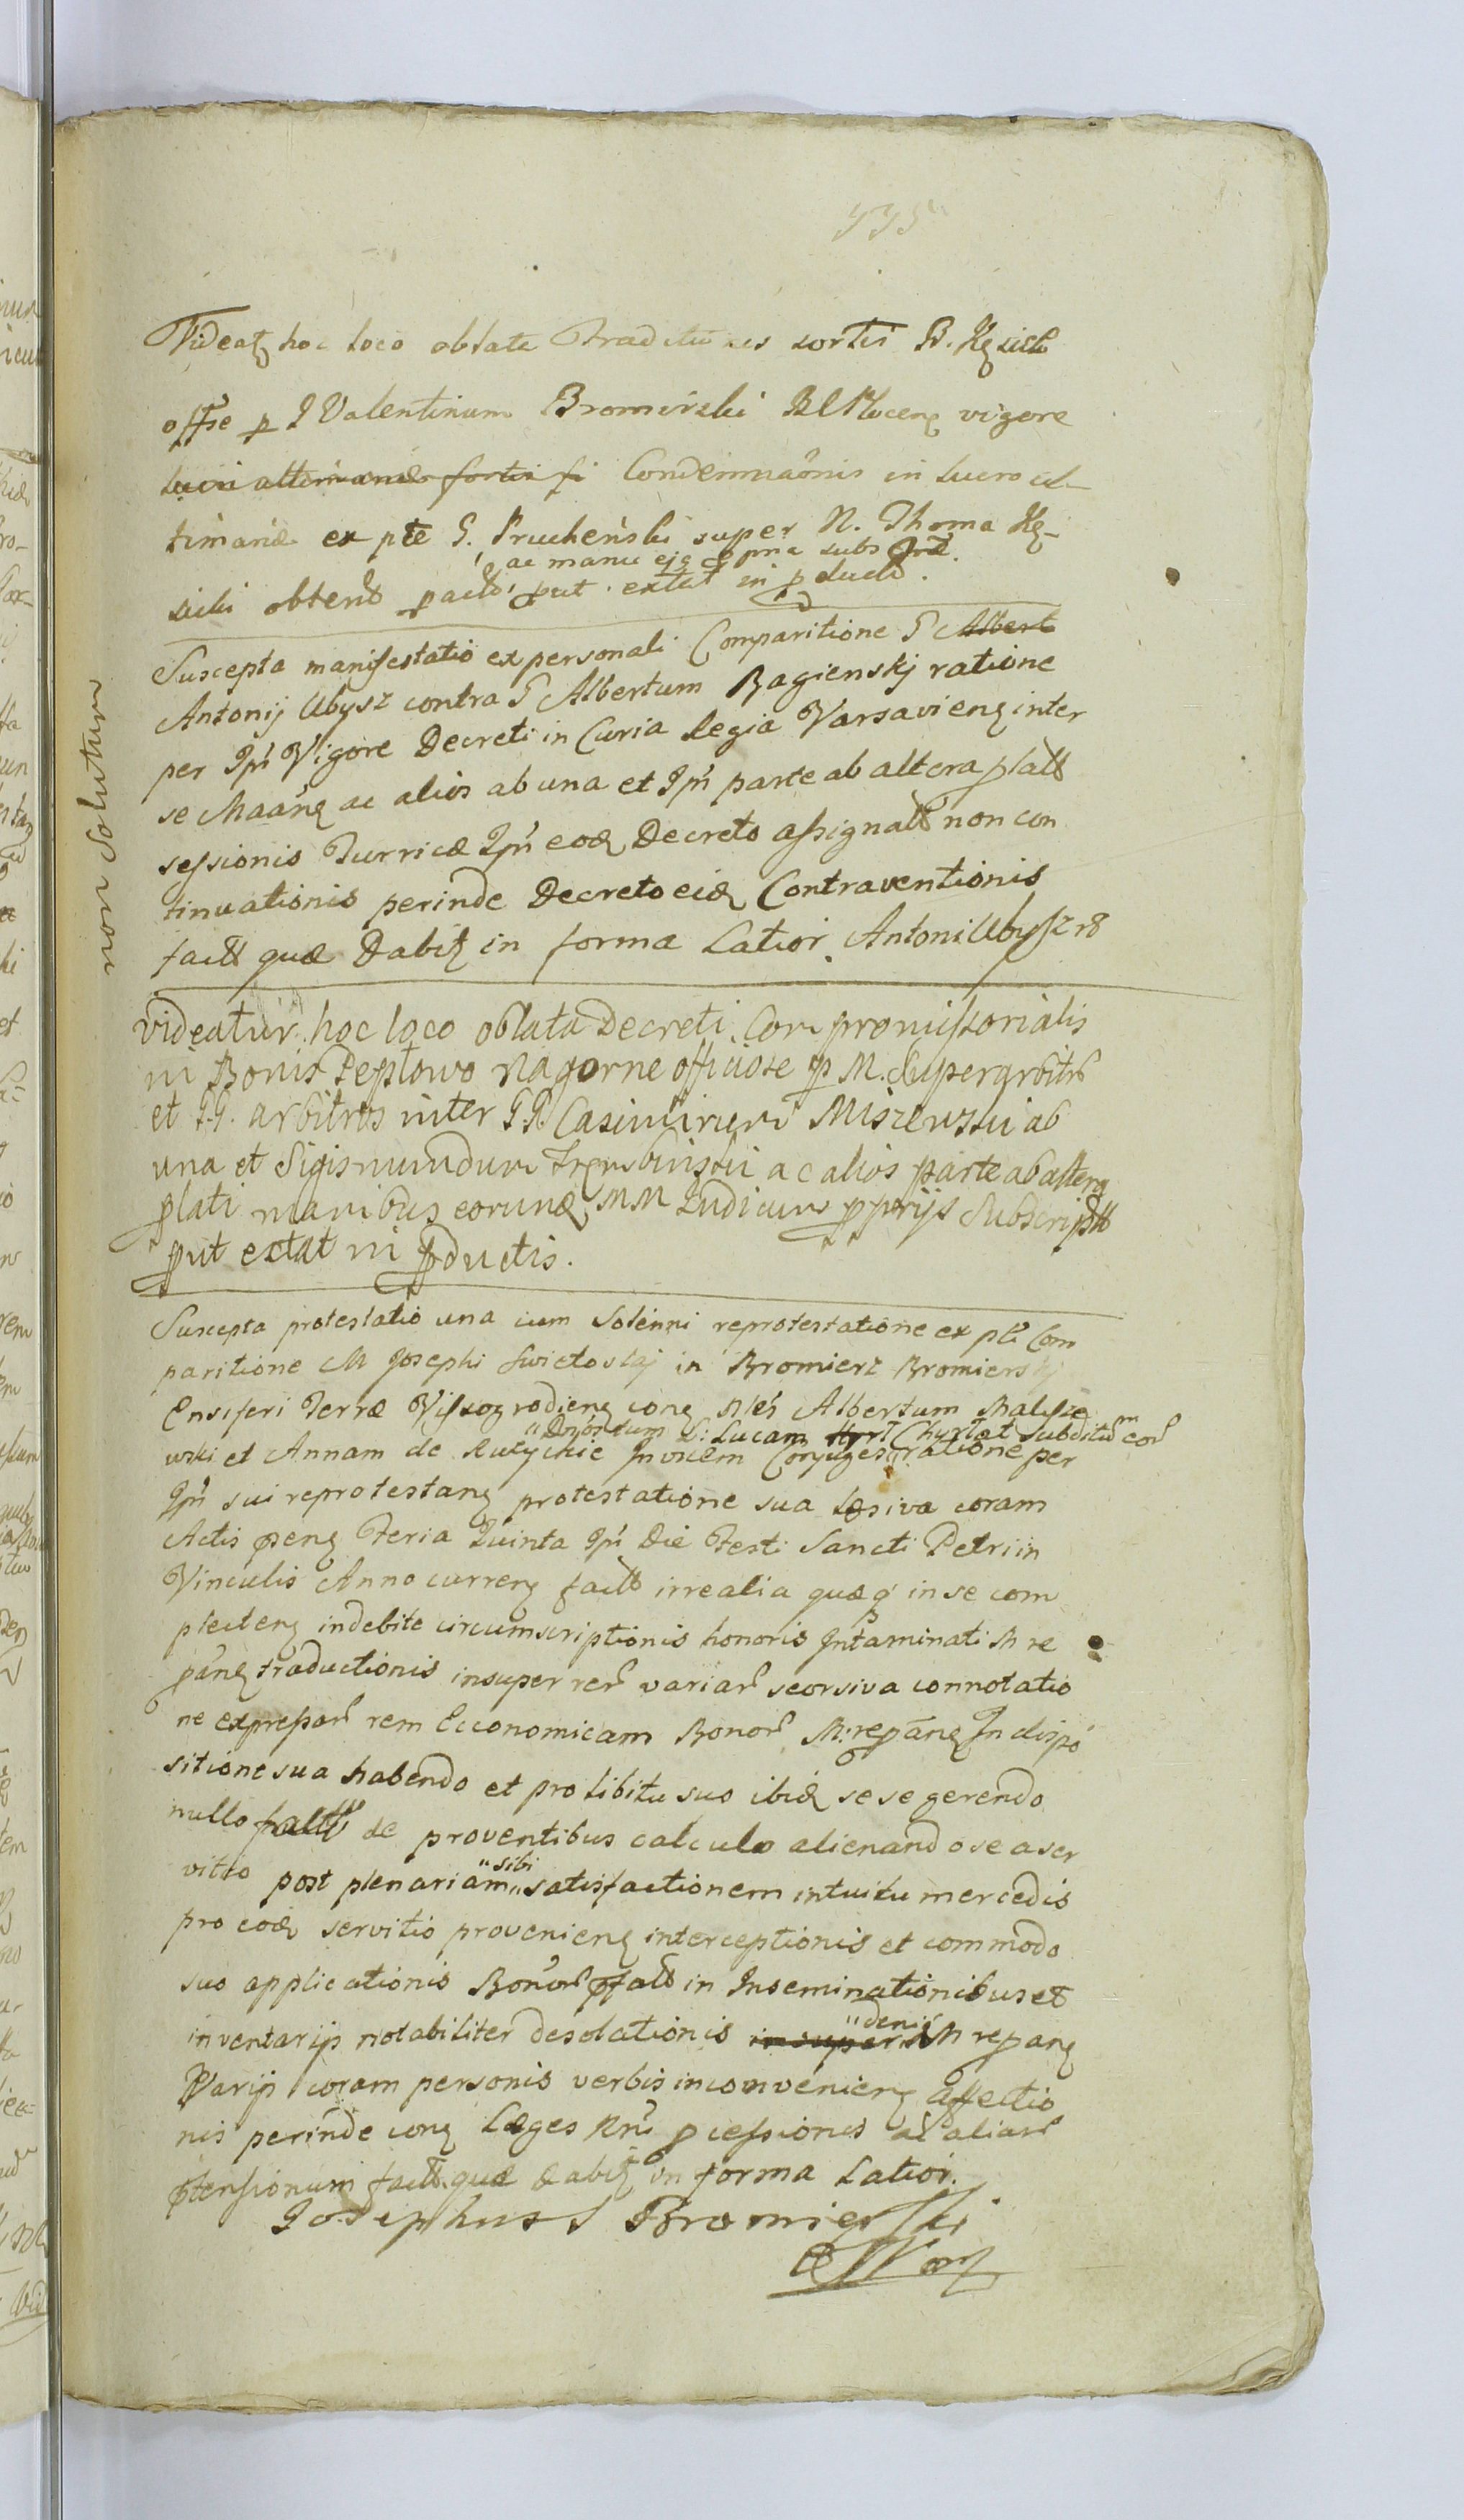 Videatz hoc loco oblata Traditionis sortis B. Kęsicki
offse p G Valentinum Bromirski BCPlocenz vigore
lucri altimanæ sortis fi Condemnaõnis in lucro ul-
timariæ ex pte G. Pruchenski super N. Thoma Kę-
ac manu ejq ppria subs
sicki obtent pact, put extat in pduct.
Suscepta manifestatio ex personali Comparitione G Albert
Antonij Ubysz contra G Albertum Bagienskj ratione
per Ipm Vigore Decreti in Curia Regia Varsavienz inter
se Maanz ac alios ab una et Ipm parte ab altera plati
sessionis Turricæ Ipm eod Decreto assignatt non con
tinuationis perinde Decreto eid Contraventionis
fact quæ Dabitz in forma Latior. Antoni Ubysz
non Solutum
videatur hoc loco oblata Decreti Compromissorialis
in Bonis Peplowo Nagorne officiose p M. Superarbitr
et GG. arbitros inter GG. Casimirum Miszewski ab
una et Sigismundum Trembinski ac alios parte ab altera
plati manibus eorund MM Iudicum pprijs Subscript
put extat in pductis.
Suscepta protestatio una cum Solenni reprotestatione ex pli Com
paritione M Josephi Swietoslaj in Bromierz Bromierskj
Ensiferi Terræ Vissogrodienz conz Nles Albertum Malisze
"Donor tum L: Lucam Chyrtat Subditum eor
wski et Annam de Rutychie Invicem Conjuges ratione per
Ipm sui reprotestanz protestatione sua Læsiva coram
Actis psenz Feria Quinta Ipm Die Festi Sancti Petri in
Vinculis Anno currenz fact irrealia quæq in se com
plectenz indebite circumscriptionis honoris Intaminati M re
panz traductionis insuper rer variar seorsiva connotatio
ne expressar rem Economicam Bonor M: repanz In dispo
sitione sua habendo et pro libitu suo ibid se se gerendo
nullo fact de proventibus calculo alienando se a ser
vitio post plenariam "sibi" satisfactionem intuitu mercedis
pro eod servitio provenienz interceptionis et commodo
suo applicationis Bonor pfat in Inseminationibus et
inventarijs notabiliter desolationis insuper "denis M repanz
Varijs coram personis verbis inconvenienz affectio
nis perinde conz Læges Rni pcessionis ac aliar
ptensionum fact. quæ dabitz in forma Latior.
Josephus S Bromierski